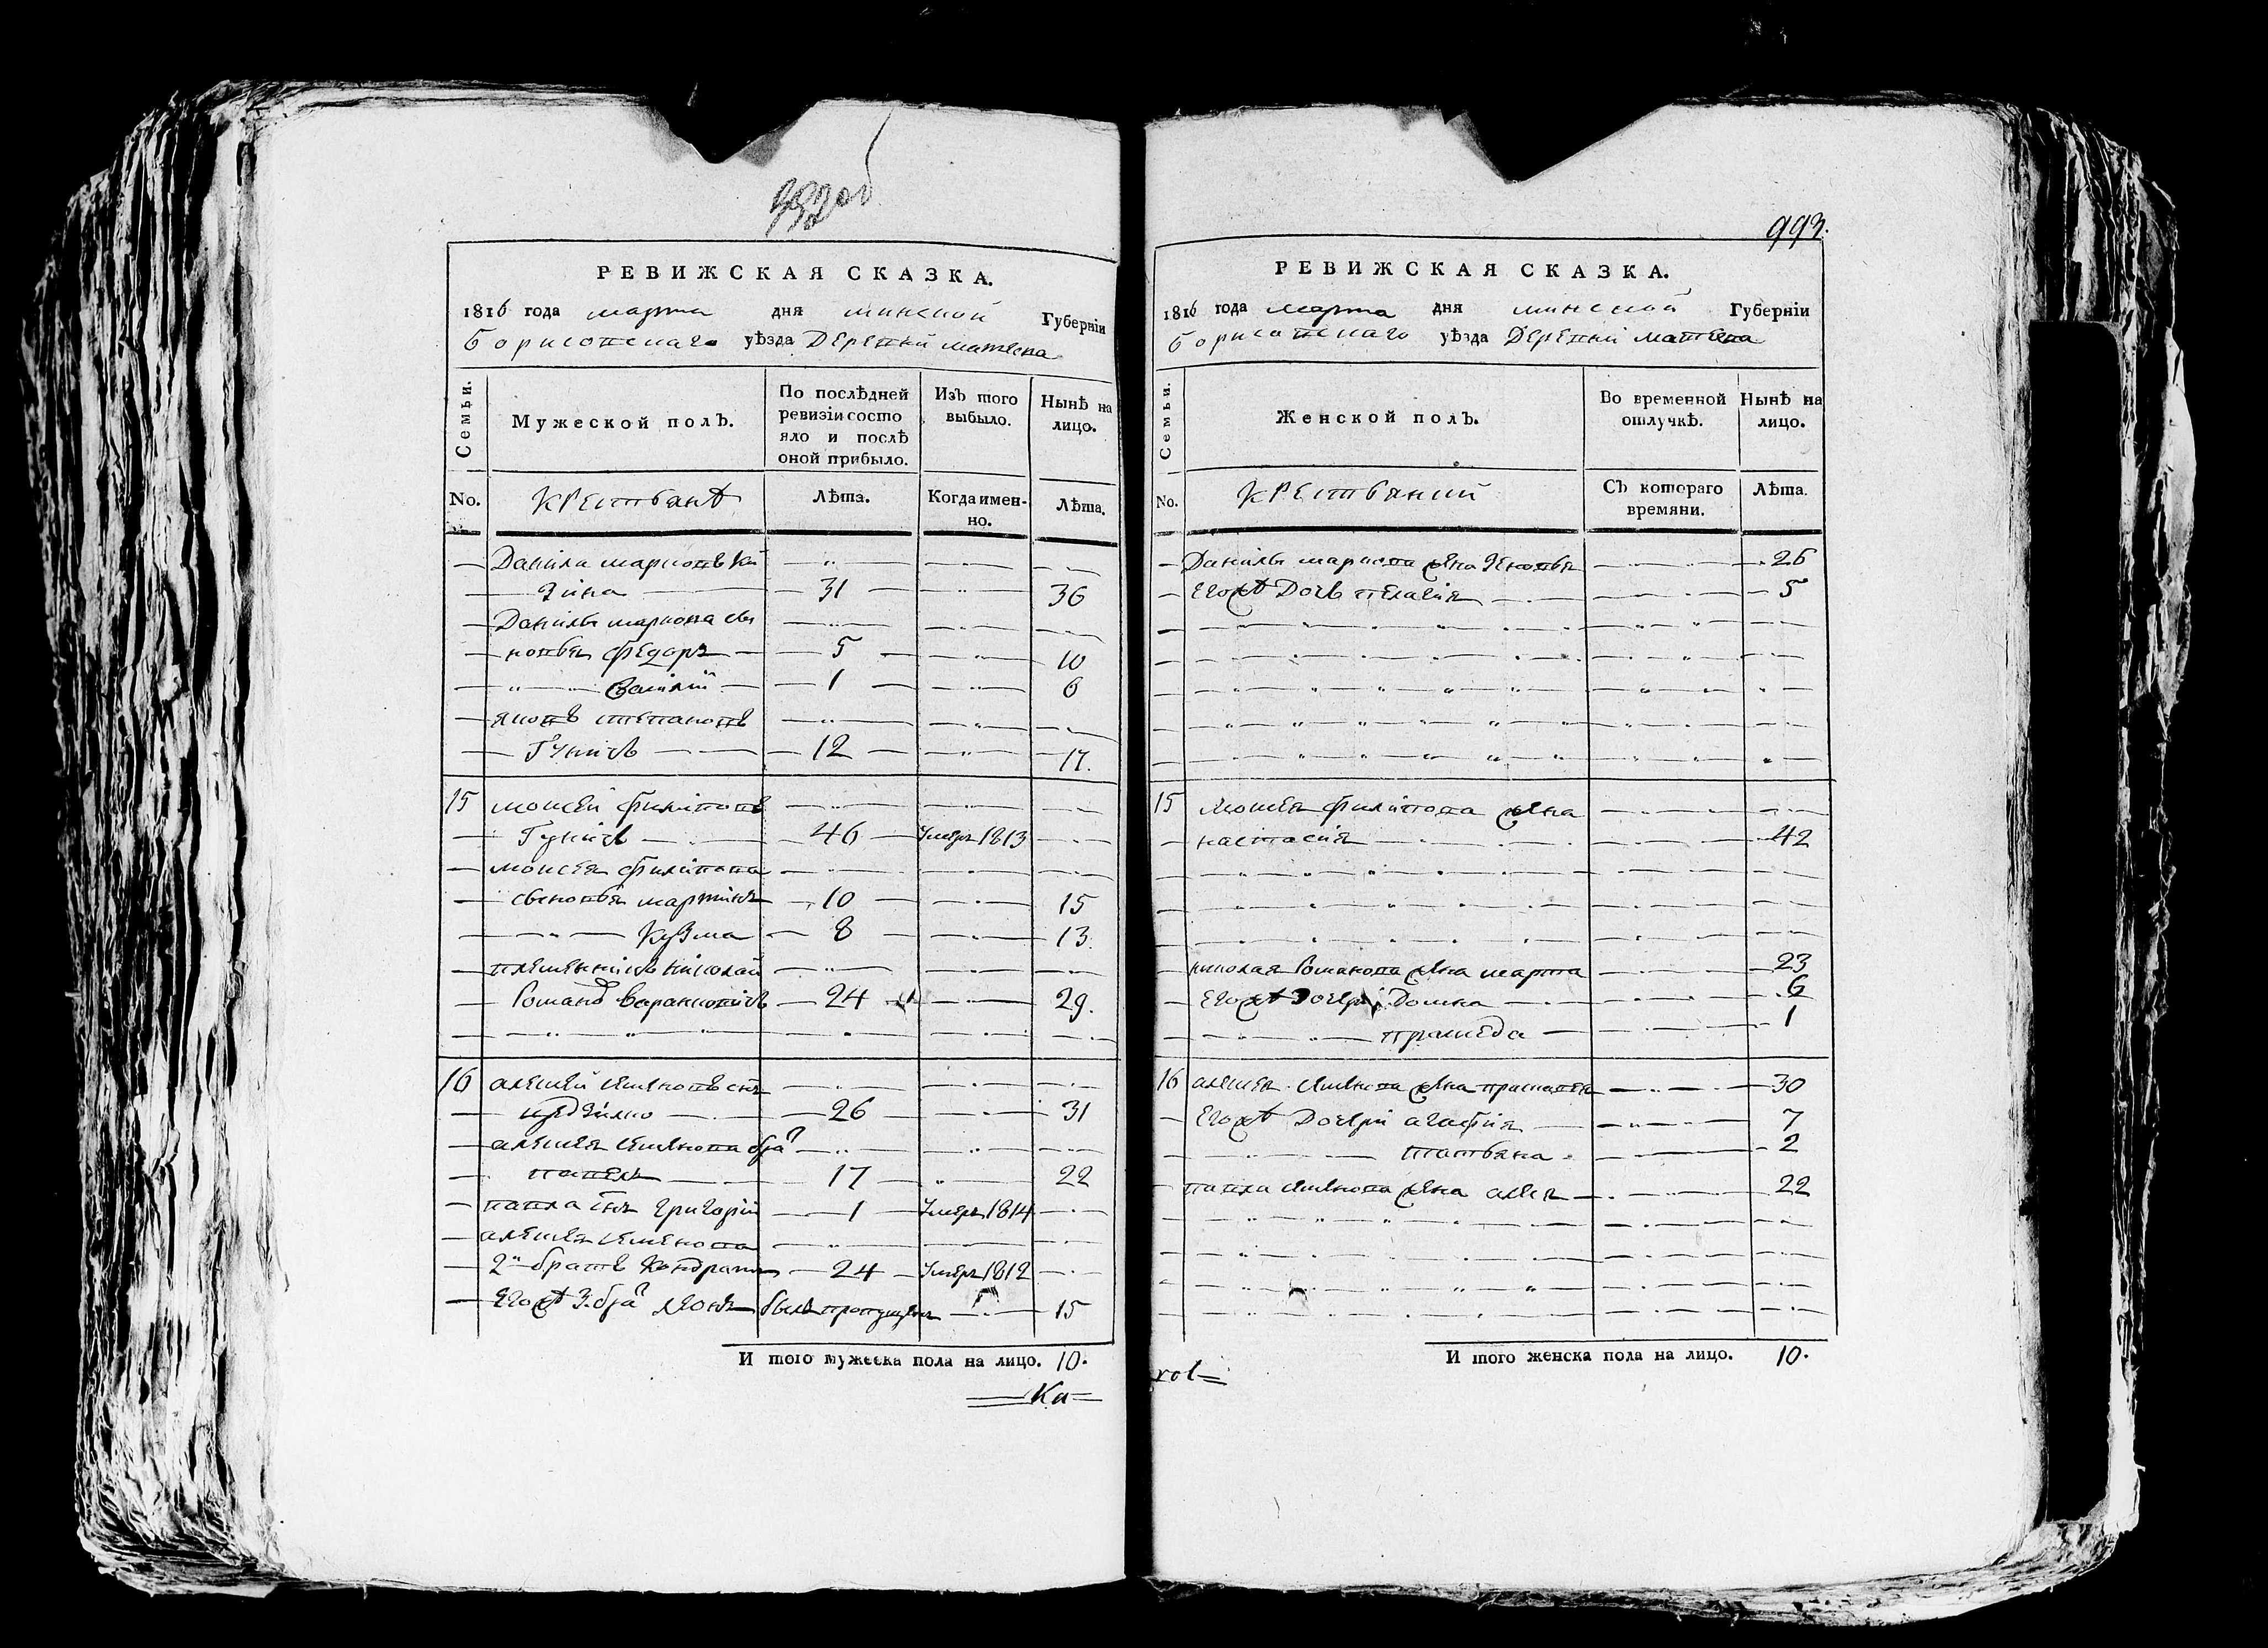 992 об
РЕВИЖСКАЯ СКАЗКА.
1816 года марта дня минской Губерніи
Борисовскаго уѣзда Деревни
Семьи.
Мужеской полъ.
По послѣдней ревизіи состояло и послѣ оной прибыло.
Изъ того выбыло.
Нынѣ на лицо.
No.
крестьянъ
Лѣта.
Когда именно.
Лѣта.
Данила марковъ
31 36
Данилы маркова сы
новья федоръ 5 10
василий 1 6
яковъ степановъ
Гуничъ 12 17.
15 моисей филиповъ
Гуничъ 46 умеръ 1813
моисея филипова
сыновья мартинъ 10 15
Кузма 8 13.
племенникъ николай
Романовъ 24 29.
16 алексей семеновъ сынъ
26 31
алексея семенова бра
павелъ 17 22
павла сынъ григорій 1 умеръ 1814
алексея семенова
2й братъ кондратъ 24 умеръ 1812
Егожъ 3. бра леонъ былъ пропущенъ 15
И того мужеска пола на лицо. 10.
Ка
993.
РЕВИЖСКАЯ СКАЗКА.
1816 года марта дня минской Губерніи
Борисовскаго уѣзда Деревни
Семьи.
Женской полъ.
Во временной отлучкѣ.
Нынѣ на лицо.
No.
Съ котораго времяни.
Лѣта.
Данилы маркова жена зеновья 26
Егожъ Дочь пелагия 5
15 моисея филипова жена
настасия 42
николая Романова жена марта 23
Егожъ Дочери Домна 6
1
16 алексея семенова жена 30
Егожъ Дочери агафия 7
татьяна 2
павла семенова жена 22
И того женска пола на лицо. 10.